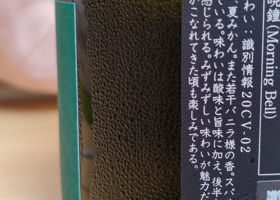 晩鐘(Morning Bell)
わい:識別情報20CV-02
夏みかん。また若干バニラ様の香。スパ
ている。味わいは酸味と旨味に加え、後半
感じられる。みずみずしい味わいが魅力だ
がこなれてきた頃も楽しみである。